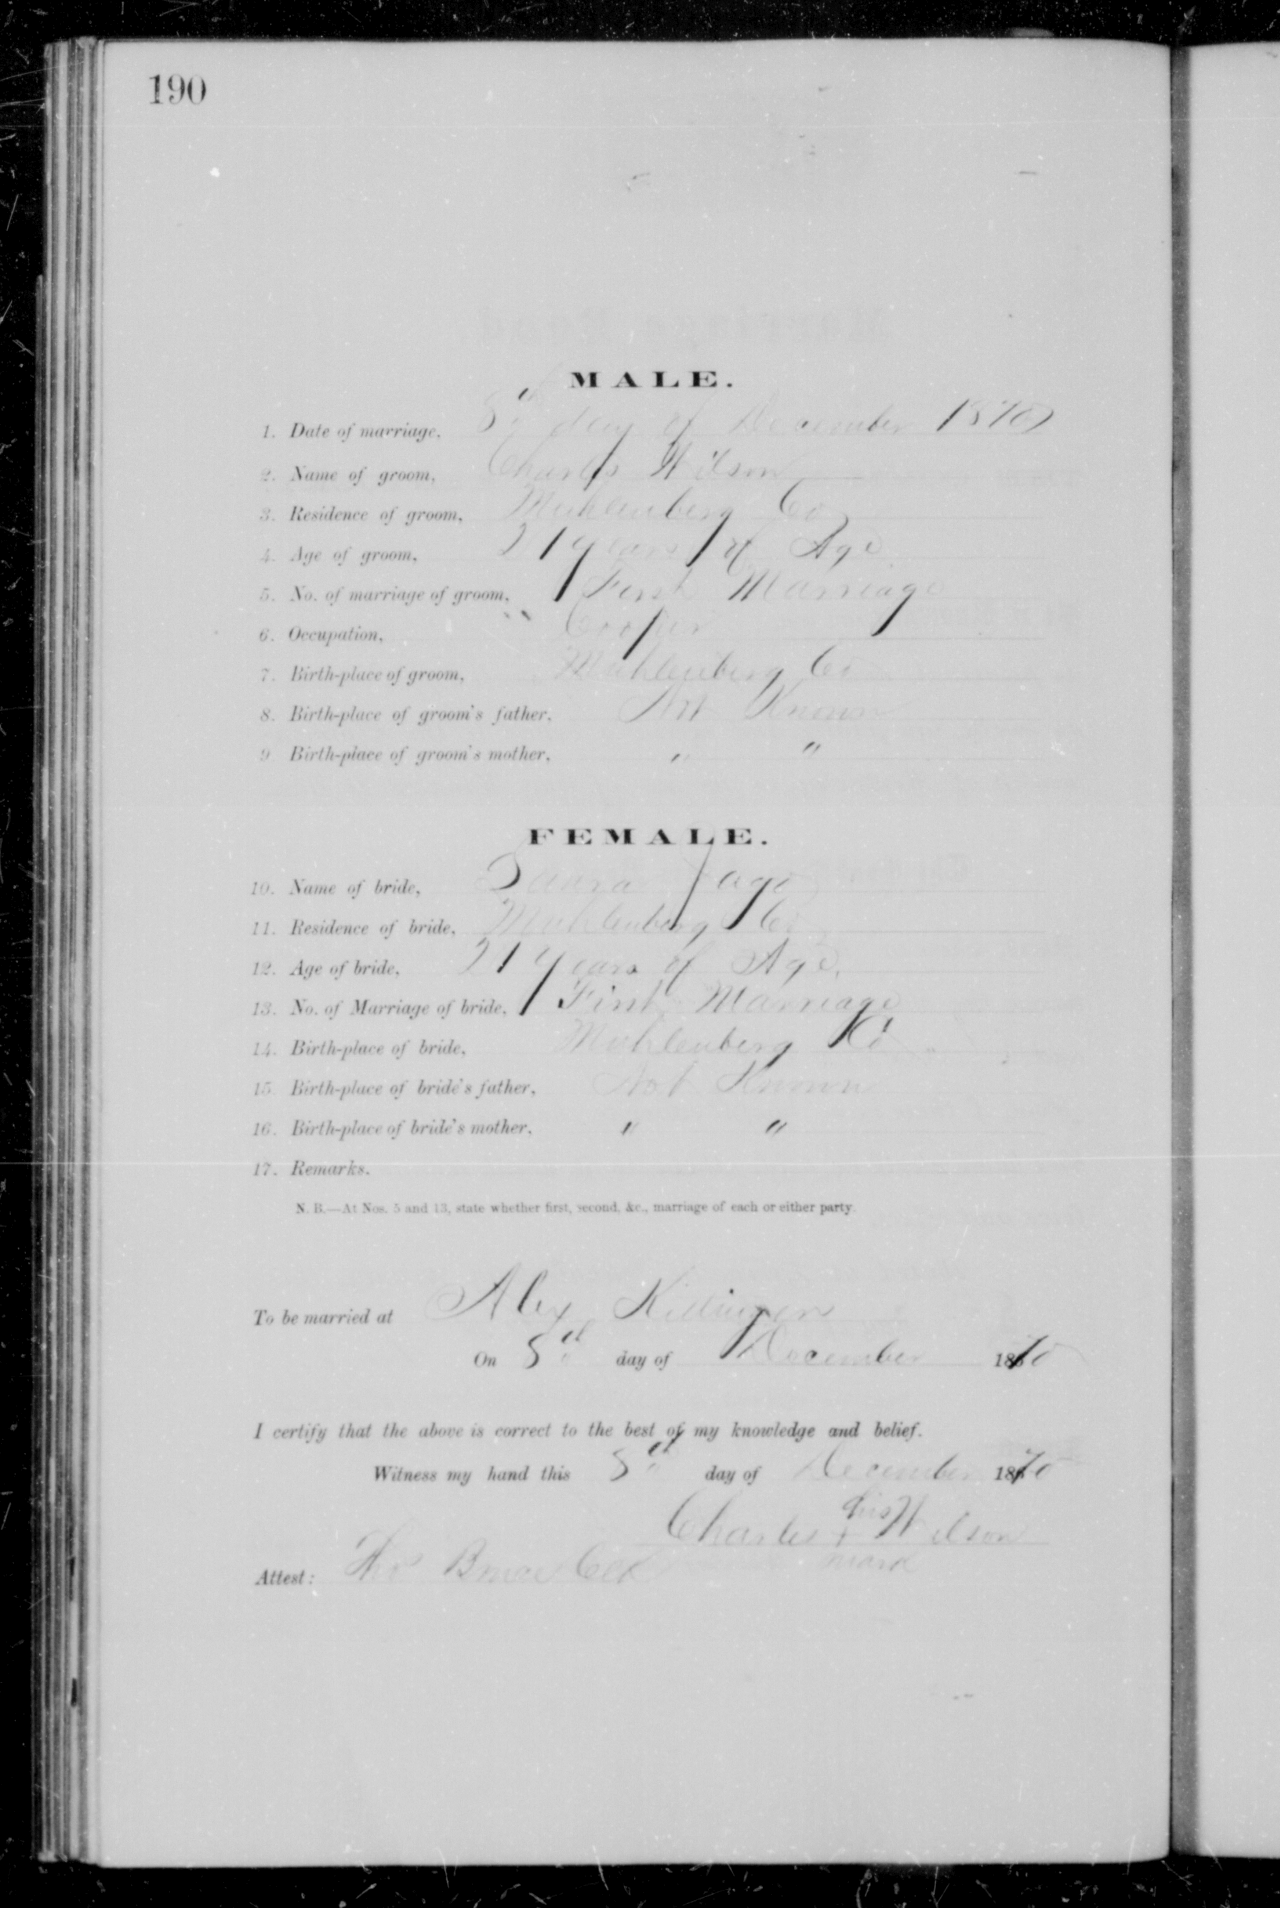 190
MALE.
1. Date of marriage, 5th day of December 1870
2. Name of groom, Charles Wilson
3. Residence of groom, Muhlenberg Co
4. Age of groom, 21 years of Age
5. No. of marriage of groom, First Marriage
6. Occupation, Cooper
7. Birth-place of groom, Muhlenberg Co
8. Birth-place of groom's father, Not Known
9 Birth-place of groom's mother, " "
FEMALE.
10. Name of bride,
11. Residence of bride, Muhlenberg Co
12. Age of bride, 21 years of Age,
13. No. of Marriage of bride, First Marriage
14. Birth-place of bride, Muhlenberg Co
15. Birth-place of bride's father, Not Known
16. Birth-place of bride's mother, " "
17. Remarks.
N. B.—At Nos. 5 and 13, state whether first, second, &c., marriage of each or either party.
To be married at Alex
On 5th day of December 1870
I certify that the above is correct to the best of my knowledge and belief.
Witness my hand this 5th day of December 1870
Charles his + Wilson
mark
Attest: Tho Bruce Clk